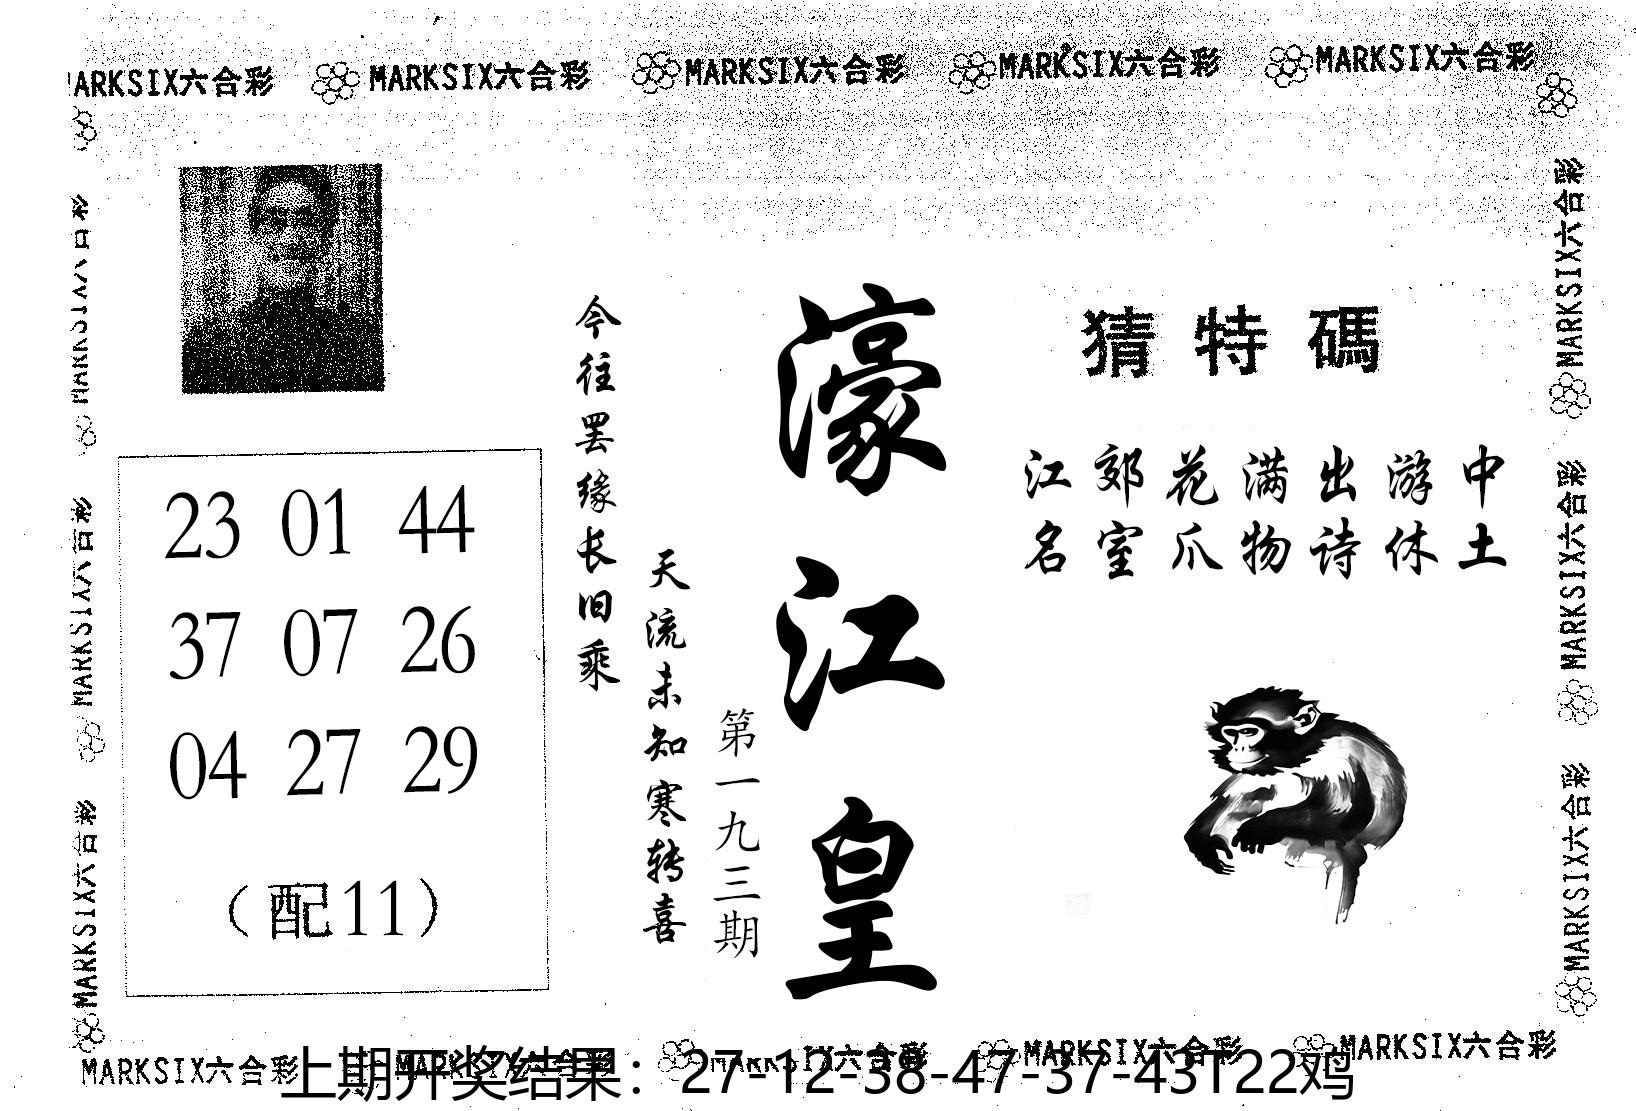 MARKSIX六合彩 MARKSIX六合彩 MARKSIX六合彩 MARKSIX六合彩 MARKSIX六合彩
猜特碼
江郊花满出游中
名室爪物诗休土
濠江皇
第一九三期
今往罢缘长旧乘
天流未知寒转喜
23 01 44
37 07 26
04 27 29
（配11）
MARKSIX六合彩
MARKSIX六合彩
MARKSIX六合彩
MARKSIX六合彩
MARKSIX六合彩
MARKSIX六合彩
MARKSIX六合彩 MARKSIX六合彩 MARKSIX六合彩 MARKSIX六合彩 MARKSIX六合彩
上期开奖结果：27-12-38-47-37-43T22鸡